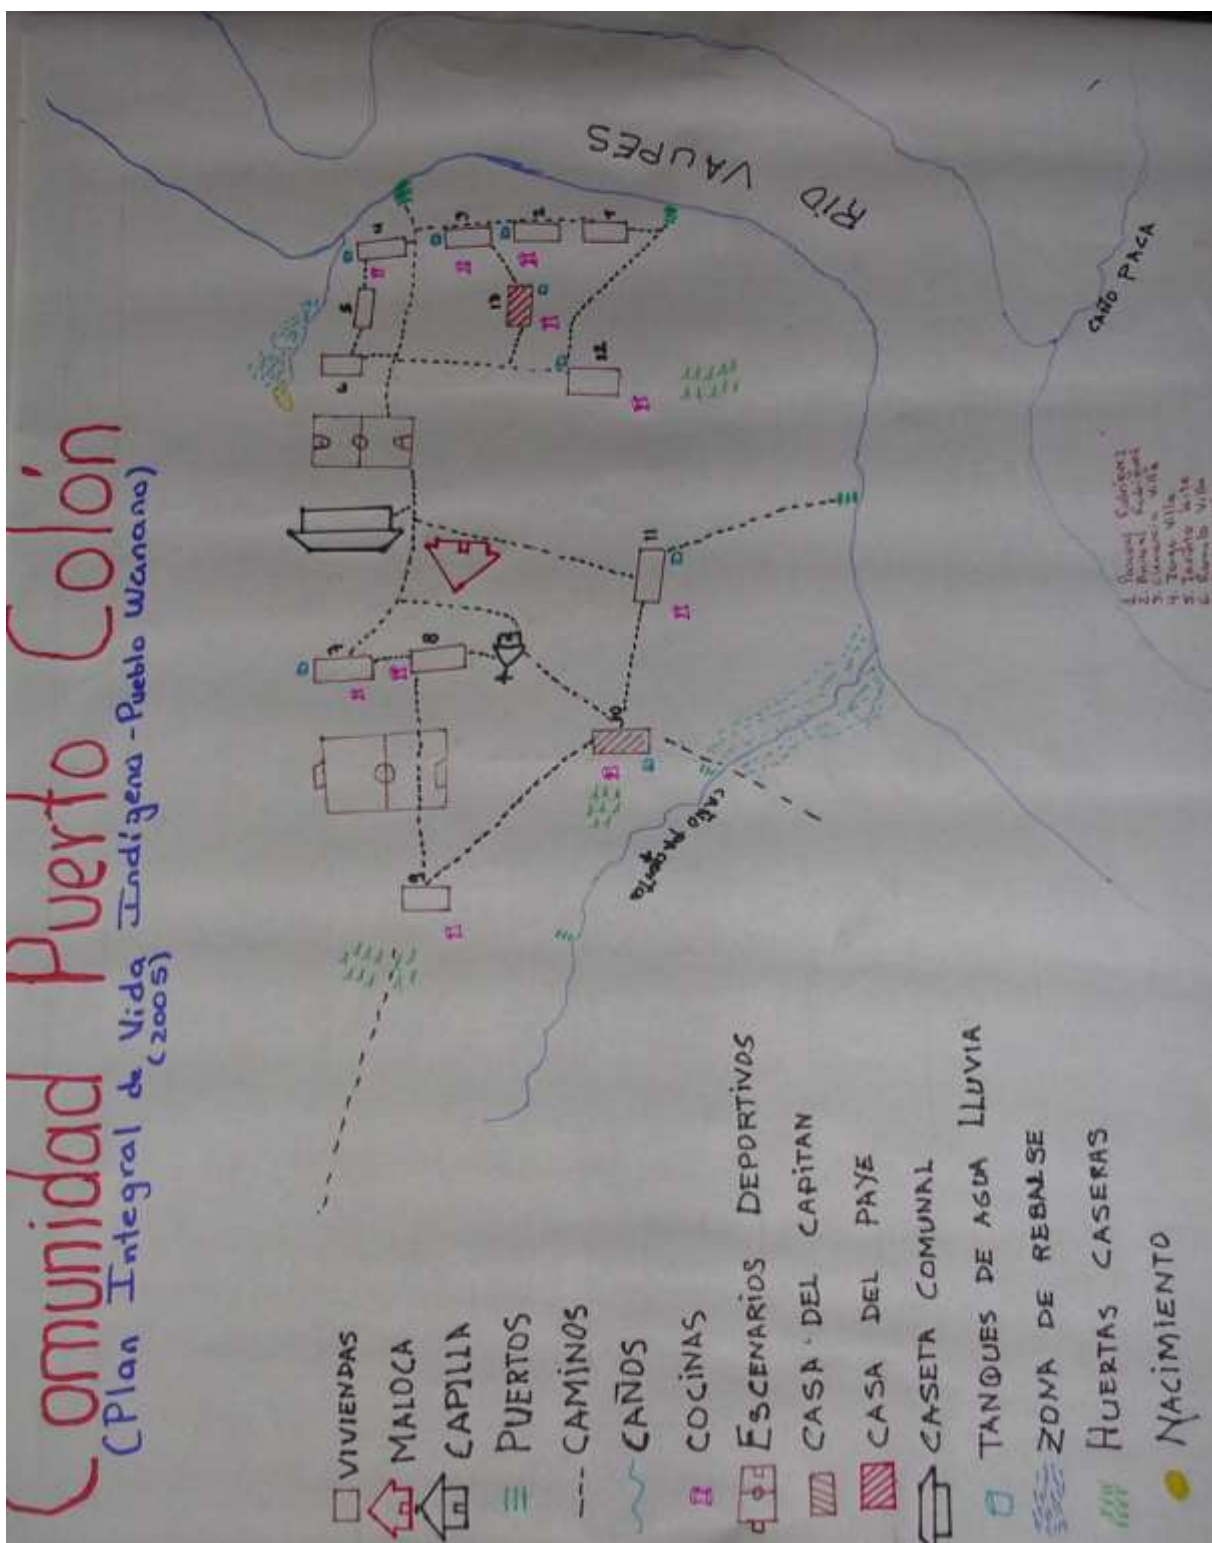 Comunidad Puerto Colón
(Plan Integral de Vida Indígena - Pueblo Wanano)
(2005)
VIVIENDAS
MALOCA
CAPILLA
PUERTOS
CAMINOS
CAÑOS
COCINAS
ESCENARIOS DEPORTIVOS
CASA DEL CAPITAN
CASA DEL PAYE
CASETA COMUNAL
TANQUES DE AGUA LLUVIA
ZONA DE REBALSE
HUERTAS CASERAS
NACIMIENTO
RIO VAUPES
CAÑO PACA
CAÑO
1
2
3
4
5
6
7
8
9
10
11
12
13
1
2
3 Villa
4 Jorge Villa
5
6 Villa